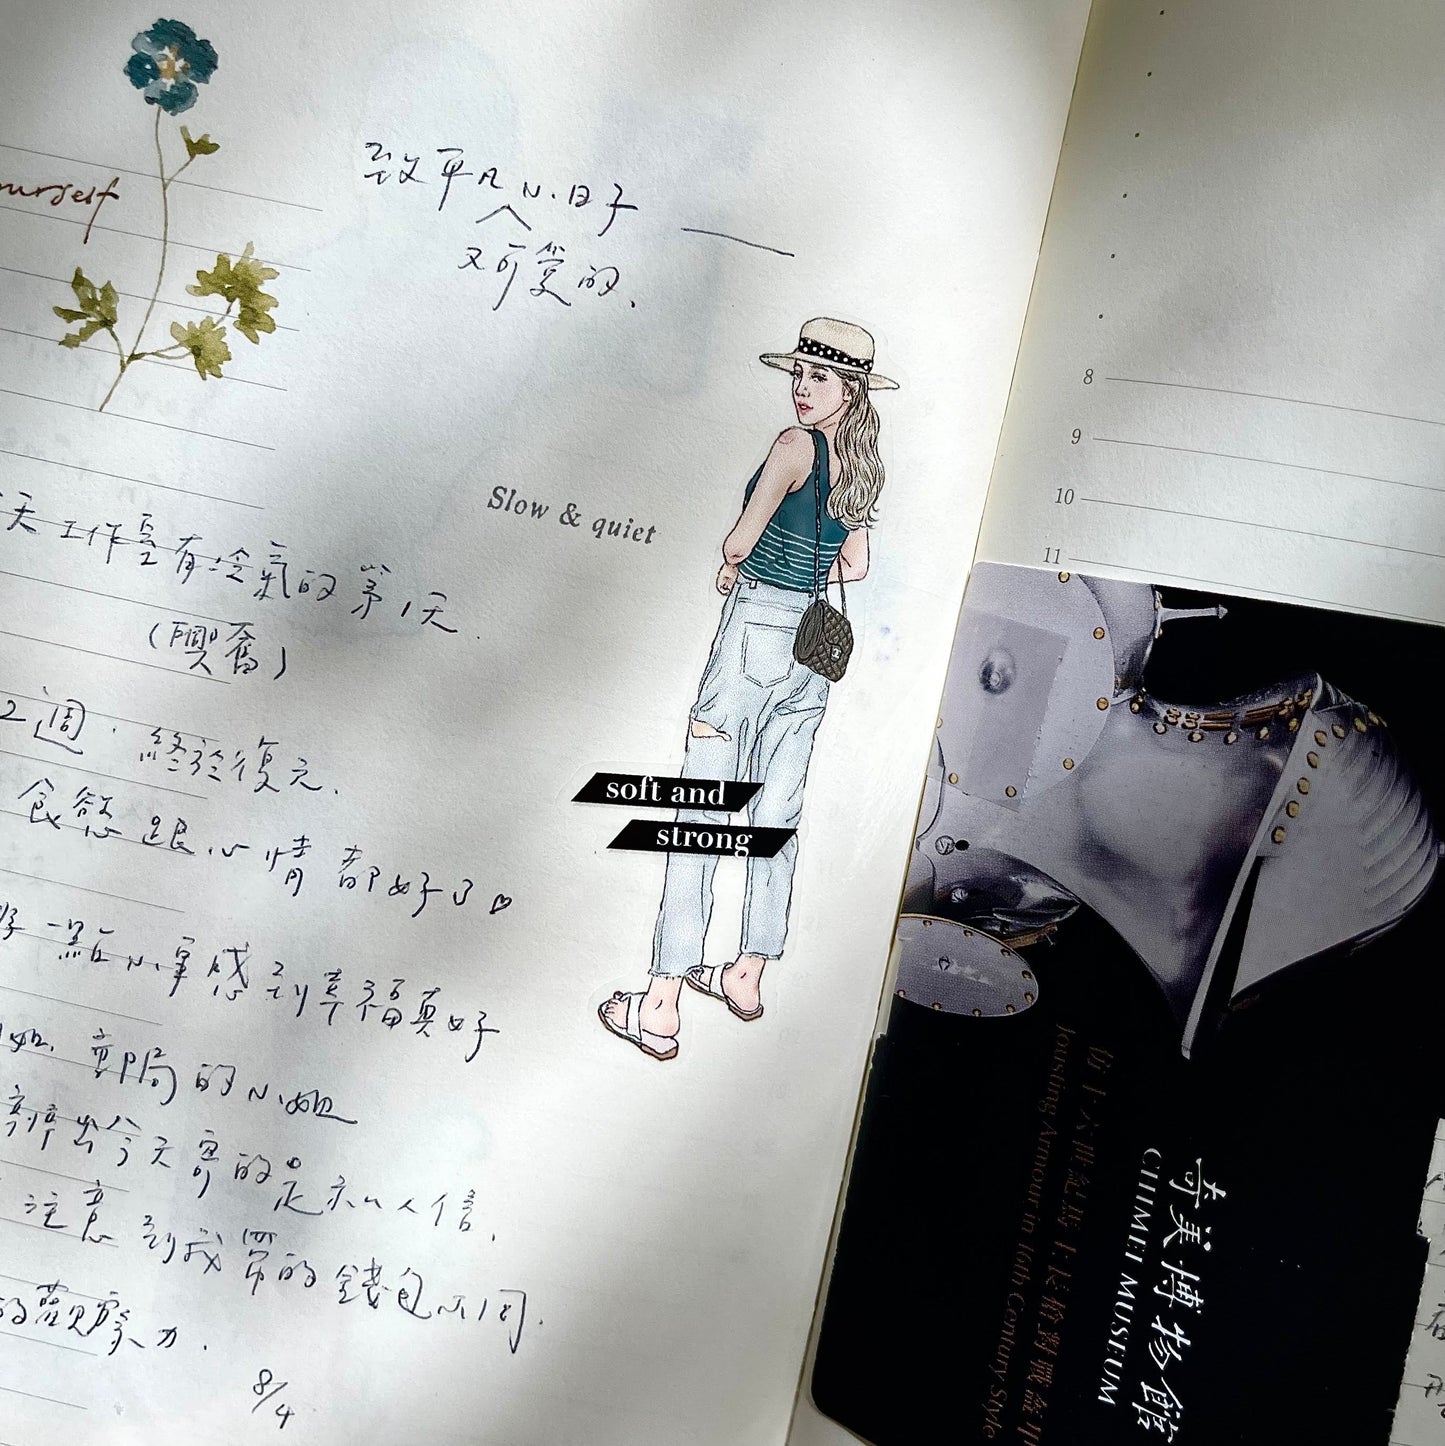 致平凡小日子
又可愛的、
ourself
Slow & quiet
天工作室有冷氣的第1天.
(興奮)
2週.終於復元.
食慾跟心情都好了♡
一點小事感到幸福真好
郵局的小姐
今天寄的是私人信.
注意到我買的錢包不同.
的觀察力.
8/4
soft and
strong
8
9
10
11
仿十六世紀馬上長槍對戰盔甲
Jousting Armour in 16th Century Style
奇美博物館
CHIMEI MUSEUM